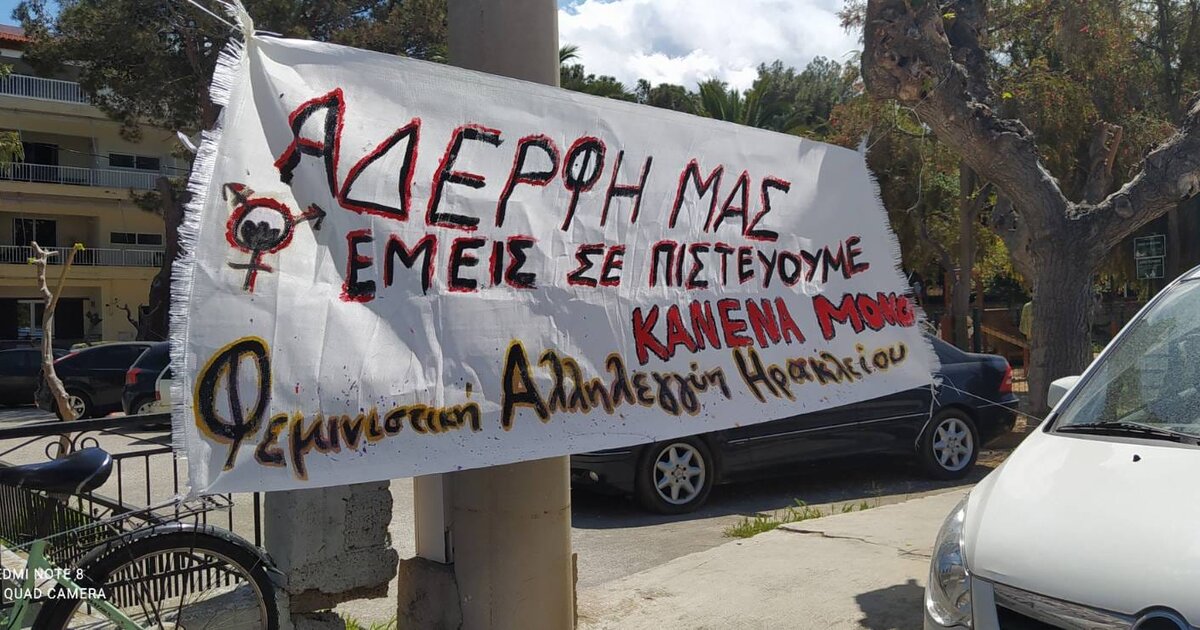 ΑΔΕΡΦΗ ΜΑΣ
ΕΜΕΙΣ ΣΕ ΠΙΣΤΕΥΟΥΜΕ
ΚΑΝΕΝΑ ΜΟΝΟ
Φεμινιστική Αλληλεγγύη Ηρακλείου
REDMI NOTE 8
QUAD CAMERA